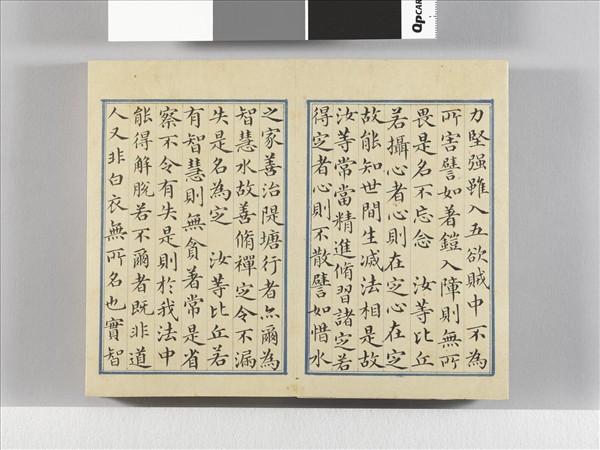 力堅强雖入五欲賊中不為
所害譬如著鎧入陣則無所
畏是名不忘念 汝等比丘
若攝心者心則在定心在定
故能知世間生滅法相是故
汝等常當精進脩習諸定若
得定者心則不散譬如惜水
之家善治隄塘行者亦爾為
智慧水故善脩禪定令不漏
失是名為定 汝等比丘若
有智慧則無貪著常是省
察不令有失是則於我法中
能得解脫若不爾者既非道
人又非白衣無所名也實智
QpCARD